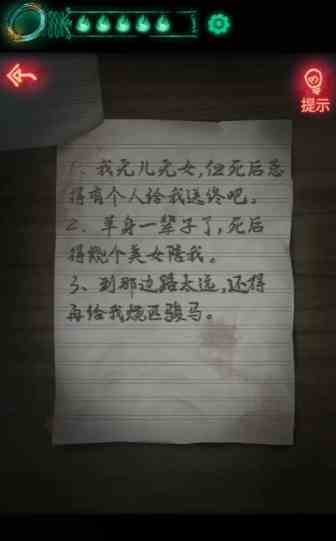 提示
1、我无儿无女,但死后总
得有个人给我送终吧。
2、单身一辈子了,死后
得烧个美女陪我。
3、到那边路太远,还得
再给我烧匹骏马。